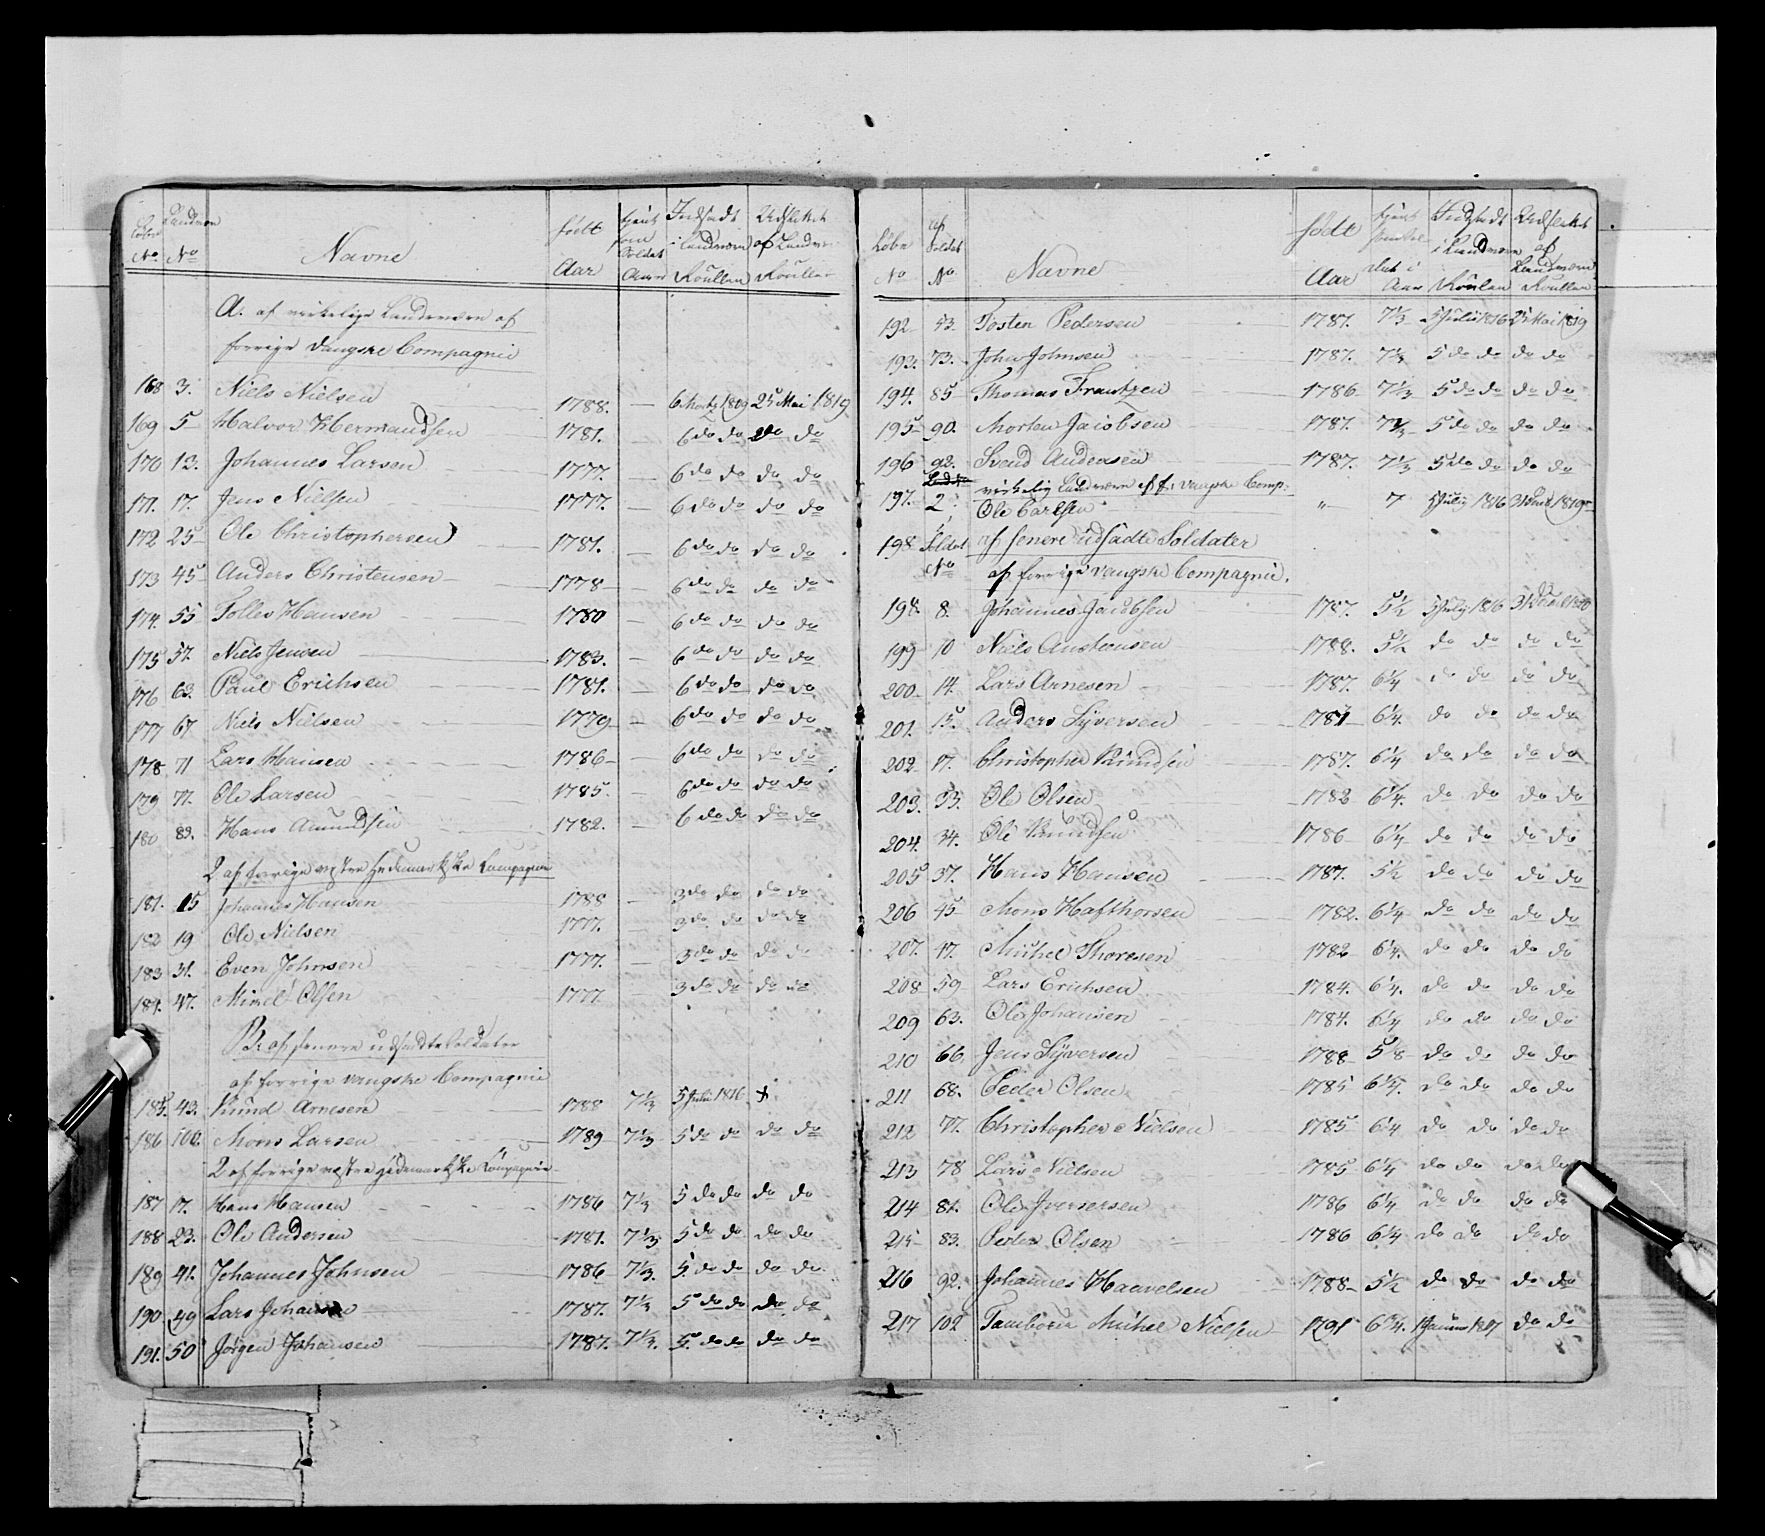 Løbe Landværn født tjent Indsadt Udslettet
No No Navne Aar som Soldat Aar i Landværn Roullen af Landværn Roullen
A. af virkelige Landeværn af
forrige Vangske Compagnie
168 3. Niels Nielsen 1788. — 6 Martz 1809 25 Mai 1819
169 5 Halvor Hermandsen 1781. — 6 do do do do
170 12. Johannes Larsen 1777. — 6 do do do do
171. 17. Jens Nielsen 1777. — 6 do do do do
172 25 Ole Christophersen 1781. — 6 do do do do
173 45 Anders Christensen 1778 — 6 do do do do
174. 55 Tolles Hansen 1780 6 do do do do
175 57. Niels Jensen 1783. — 6 do do do do
176 63. Paul Erichsen 1781. — 6 do do do do
177 67 Niels Nielsen 1779 — 6 do do do do
178 71 Lars Hansen 1786 — 6 do do do do
179 77. Ole Larsen 1785. — 6 do do do do
180 89. Hans Amundsen 1782. — 6 do do do do
2 af forrige vestre Hedemarkske Compagnie
181. 15 Johannes Hansen 1788 — 3 do do do do
182 19 Ole Nielsen 1777. — 3 do do do do
183 31. Even Johnsen 1777. — 3 do do do do
184. 47. Mikel Olsen 1777 — 3 do do do do
B. af senere udsadte Soldater
af forrige vangske Compagnie
185. 43. Knud Arnesen 1788 7 1/3 5 Julii 1816 +
186 100. Mons Larsen 1789 7 1/3 5 do do do do
2 af forrige vestre Hedemarkske Compagnie
187 17. Hans Hansen 1786 7 1/3 5 do do do do
188 23. Ole Andersen 1781. 7 1/3 5 do do do do
189 41. Johannes Johnsen 1786 7 1/3. 5. do do do do
190 49 Lars Johansen 1787. 7 1/3 5 do do do do
191. 50 Jørgen Johansen 1787. 7 1/3. 5. do do do do
Løbe af Soldat født tjent Indsadt Udslettet
No No Navne Aar som Soldat i Aar i Landværn Roulen af Landværn Roullen
192 53. Tosten Pedersen 1787. 7 1/3 5 Julii 1816 25 Mai 1819
193. 73. John Johnsen 1787. 7 1/3 5 do do do do
194. 85 Thomas Frantzen 1786 7 1/3 5 do do do do
195 90. Morten Jacobsen 1787. 7 1/3 5 do do do do
196 92. Svend Andersen 1787. 7 1/3 5 do do do do
virkelig Landværn af f. vangske Comp:
197. 2. Ole Carlsen " 7 5 Julij 1816
198 Soldat af senere udsadte Soldater
No af forrige vangske Compagnie.
198. 8. Johannes Jacobsen 1787. 5 1/2 5 Julij 1816
199 10 Niels Anstensen 1788. 5 1/2 do do do do
200 14. Lars Arnesen 1787. 6 1/4 do do do do
201. 15. Anders Syversen 1781 6 1/4 do do do do
202 17. Christopher Knudsen 1787. 6 1/4 do do do do
203. 33. Ole Olsen 1782 6 1/4. do do do do
204. 34. Ole Knudsen 1786 6 1/4 do do do do
205 37. Hans Hansen 1787. 5 1/2 do do do do
206 45 Mons Hafthorsen 1782. 6 1/4 do do do do
207. 47. Mickel Thoresen 1782 6 1/4. do do do do
208 59 Lars Erichsen 1784. 6 1/4. do do do do
209 63. Ole Johansen 1784. 6 1/4 do do do do
210 66. Jens Syversen 1788 5 1/8 do do do do
211 68. Peder Olsen 1785 6 1/4. do do do do
212 77. Christopher Nielsen 1785 6 1/4 do do do do
213 78 Lars Nielsen 1785 6 1/4 do do do do
214 81. Ole Iversersen 1786 6 1/4 do do do do
215 83. Peder Olsen 1786 6 1/4 do do do do
216 92. Johannes Haavelsen 1788 5 1/2 do do do do
217 102 Tambour Mickel Nielsen 1791 6 3/4. 1 Januar 1817 do do